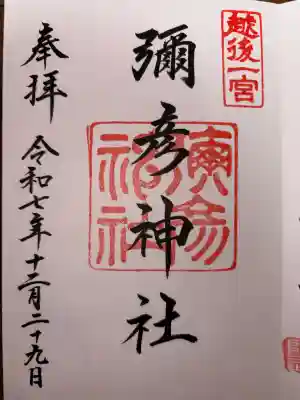 越後一宮
彌彦神社
奉拝
令和七年十二月二十九日